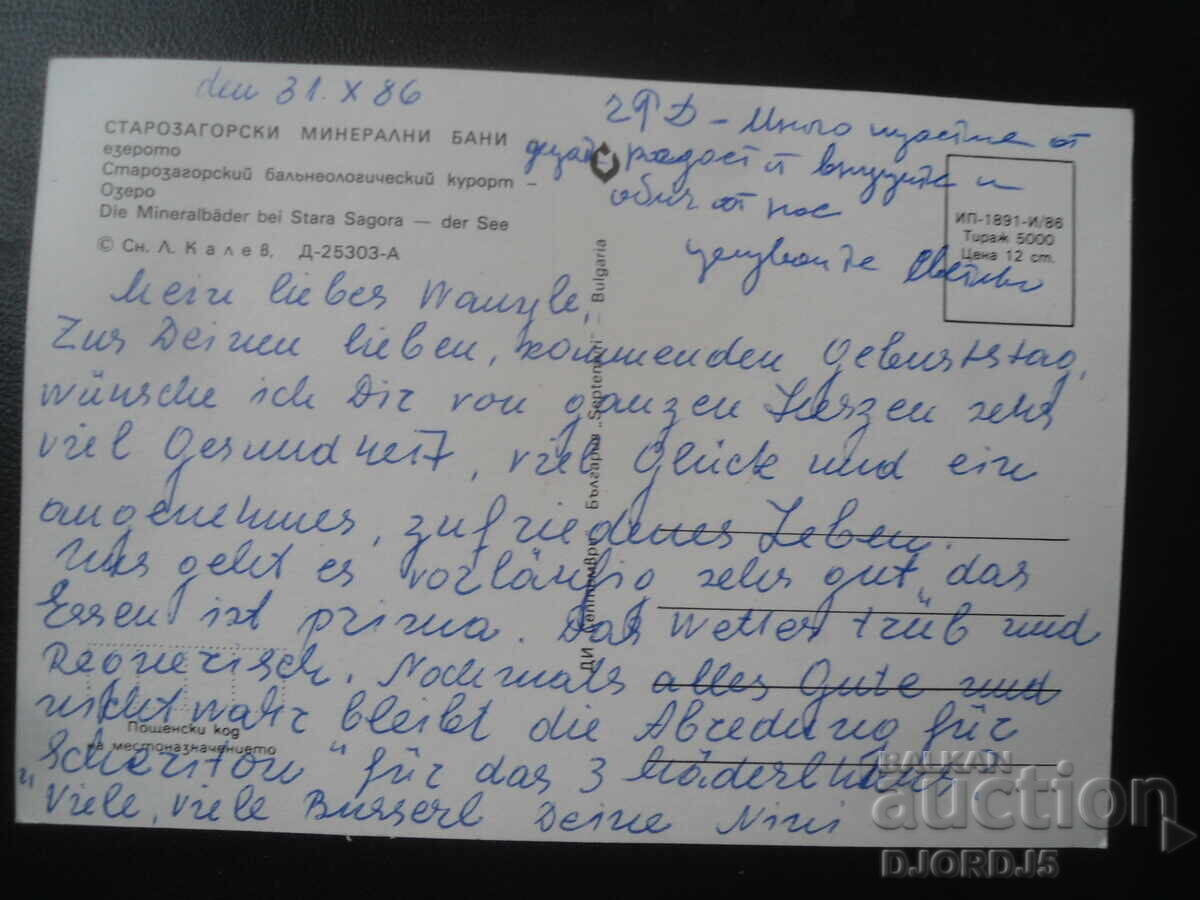 den 31. X 86
СТАРОЗАГОРСКИ МИНЕРАЛНИ БАНИ
езерото
Старозагорский бальнеологический курорт –
Озеро
Die Mineralbäder bei Stara Sagora — der See
© Сн. Л. Калев, Д-25303-А
ЧРД – Много щастие от
радост и внуците и
обич от нас
целувки
ИП-1891-И/86
Тираж 5000
Цена 12 ст.
ДИ „Септември“ България „Septemvri“ — Bulgaria
Mein liebes
Zur Deinen lieben, kommenden Geburtstag,
wünsche ich Dir von ganzen Herzen sehr
viel Gesundheit, viel Glück und ein
angenehmes, zufriedenes Leben.
Uns geht es vorläufig sehr gut, das
Essen ist prima. Das Wetter trüb und
Regnerisch. Nochmals alles Gute und
nicht wahr bleibt die Abredung für
" für das 3 Mäderlhaus.
Viele, viele Busserl Deine Nini
Пощенски код
на местоназначението
BALKAN
auction
DJORDJ5